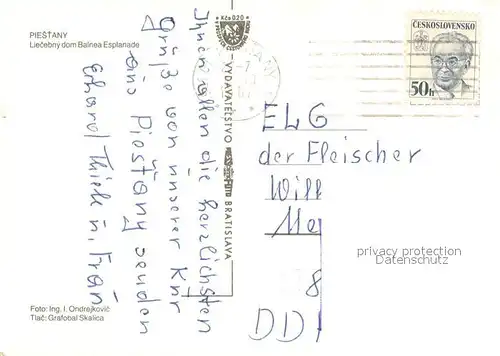 PIEŠŤANY
Liečebný dom Balnea Esplanade
Kčs 0.20
VYDAVATEĽSTVO
BRATISLAVA
ČESKOSLOVENSKO
50h
Ihnen allen die herzlichsten
Grüße von unserer Kur
aus Piešťany senden
Erhard Thiele u. Frau
ELG
der Fleischer
Will
Me
8
DD
privacy protection
Datenschutz
Foto: Ing. I. Ondrejkovič
Tlač: Grafobal Skalica